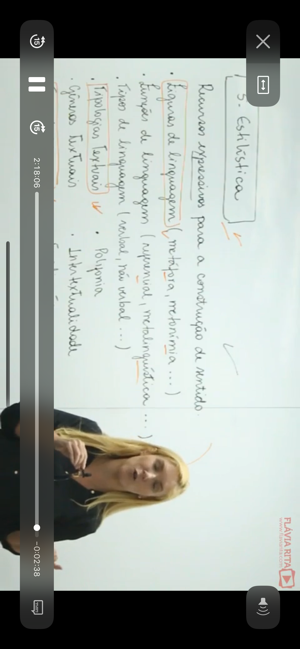 5. Estilística
Recursos expressivos para a construção de sentido
• Figuras de linguagem (metáfora, metonímia ...)
• Funções de linguagem (referencial, metalinguística ...)
• Tipos de linguagem (verbal, não verbal ...)
• Tipologias Textuais • Polifonia
• Gêneros Textuais • Intertextualidade
FLÁVIA RITA
15
15
2:18:06
-0:02:38